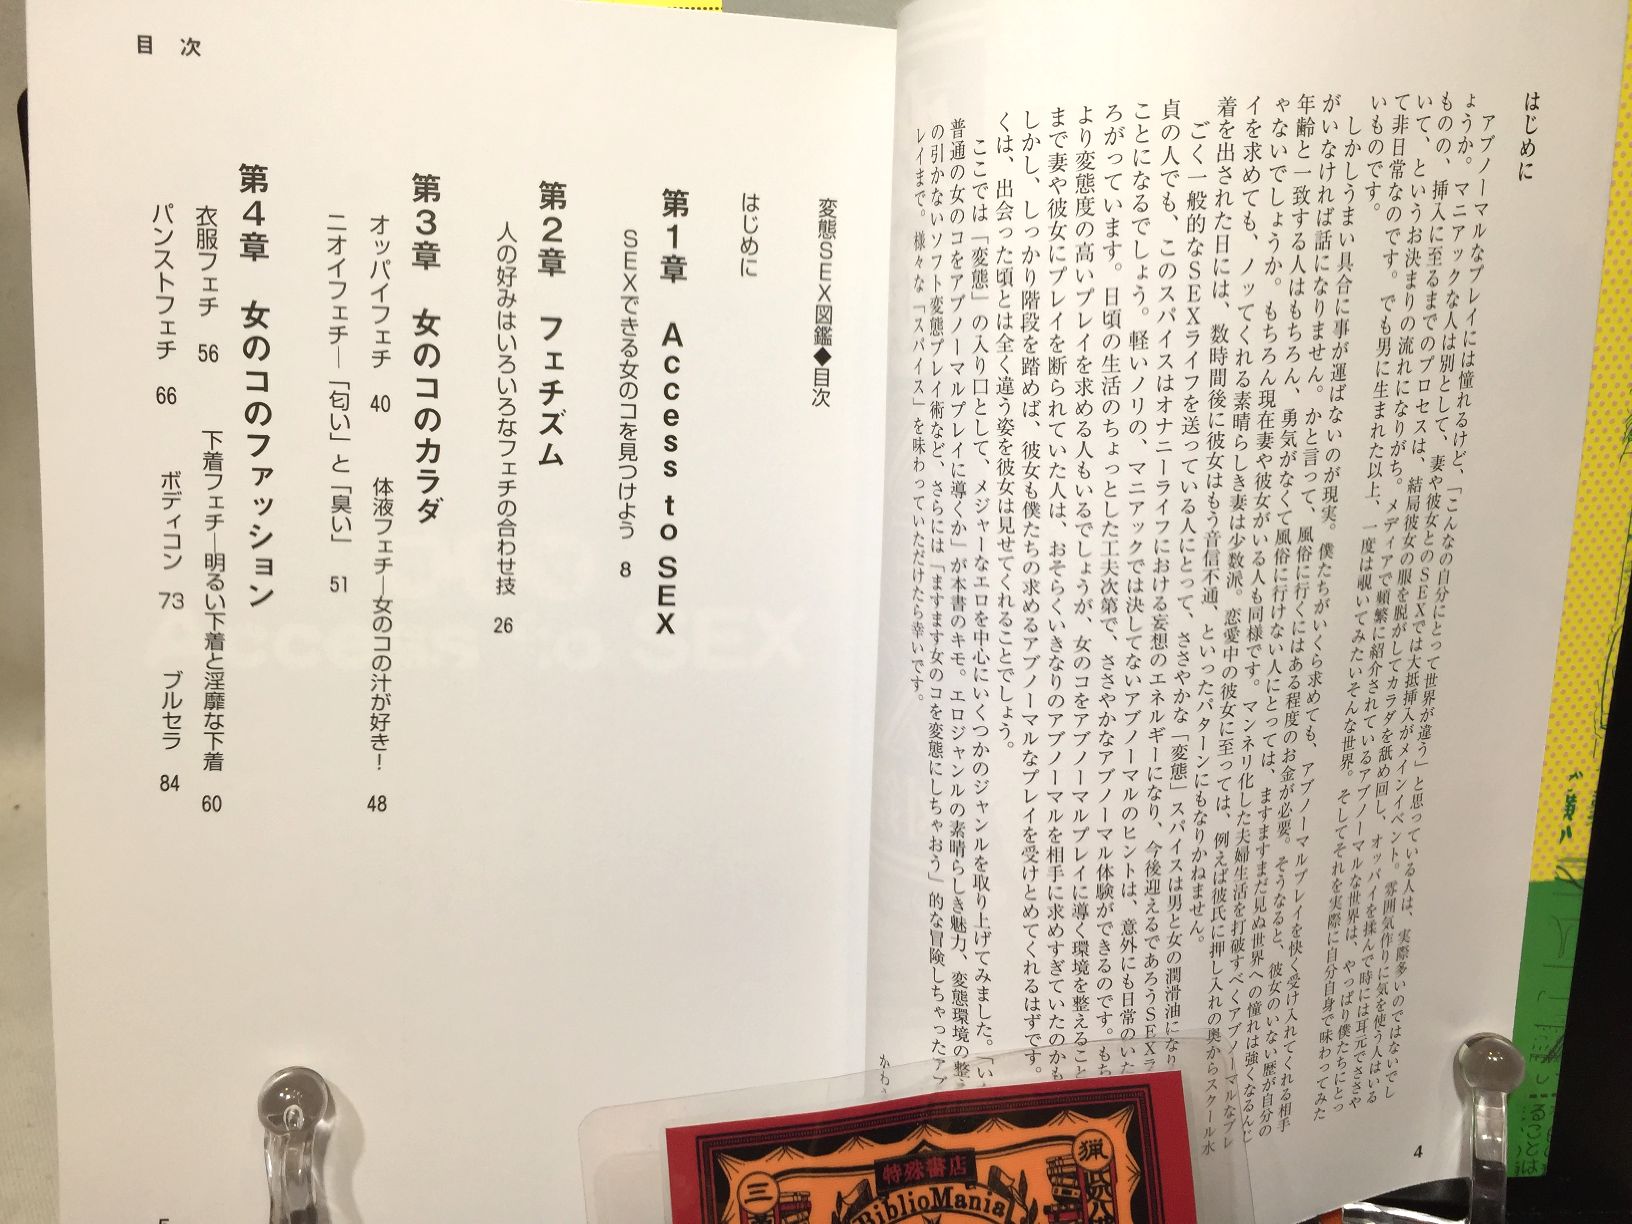 はじめに
アブノーマルなプレイには憧れるけど、「こんなの自分にとって世界が違う」と思っている人は、実際多いのではないでし
ょうか。マニアックな人は別として、妻や彼女とのSEXでは大抵挿入がメインイベント。雰囲気作りに気を使う人はいる
ものの、挿入に至るまでのプロセスは、結局彼女の服を脱がしてカラダを舐め回し、オッパイを揉んで時には耳元でささや
いて、というお決まりの流れになりがち。メディアで頻繁に紹介されているアブノーマルな世界は、やっぱり僕たちにとっ
て非日常なのです。でも男に生まれた以上、一度は覗いてみたいそんな世界。そしてそれを実際に自分自身で味わってみた
いものです。
しかしうまい具合に事が運ばないのが現実。僕たちがいくら求めても、アブノーマルプレイを快く受け入れてくれる相手
がいなければ話になりません。かと言って、風俗に行くにはある程度のお金が必要。そうなると、彼女のいない歴が自分の
年齢と一致する人はもちろん、勇気がなくて風俗に行けない人にとっては、ますますまだ見ぬ世界への憧れは強くなるんじ
ゃないでしょうか。もちろん現在妻や彼女がいる人も同様です。マンネリ化した夫婦生活を打破すべくアブノーマルなプレ
イを求めても、ノッてくれる素晴らしき妻は少数派。恋愛中の彼女に至っては、例えば彼氏に押し入れの奥からスクール水
着を出された日には、数時間後に彼女はもう音信不通、といったパターンにもなりかねません。
ごく一般的なSEXライフを送っている人にとって、ささやかな「変態」スパイスは男と女の潤滑油になり
貞の人でも、このスパイスはオナニーライフにおける妄想のエネルギーになり、今後迎えるであろうSEXラ
ことになるでしょう。軽いノリの、マニアックでは決してないアブノーマルのヒントは、意外にも日常のいた
ろがっています。日頃の生活のちょっとした工夫次第で、ささやかなアブノーマル体験ができるのです。もち
より変態度の高いプレイを求める人もいるでしょうが、女のコをアブノーマルプレイに導く環境を整えること
まで妻や彼女にプレイを断られていた人は、おそらくいきなりのアブノーマルを相手に求めすぎていたのかも
しかし、しっかり階段を踏めば、彼女も僕たちの求めるアブノーマルなプレイを受けとめてくれるはずです。
くは、出会った頃とは全く違う姿を彼女は見せてくれることでしょう。
ここでは「変態」の入り口として、メジャーなエロを中心にいくつかのジャンルを取り上げてみました。「い
普通の女のコをアブノーマルプレイに導くか」が本書のキモ。エロジャンルの素晴らしき魅力、変態環境の整
の引かないソフト変態プレイ術など、さらには「ますます女のコを変態にしちゃおう」的な冒険しちゃったアブ
レイまで。様々な「スパイス」を味わっていただけたら幸いです。
かわ
4
目 次
変態SEX図鑑◆目次
はじめに
第1章 Access to SEX
SEXできる女のコを見つけよう 8
第2章 フェチズム
人の好みはいろいろなフェチの合わせ技 26
第3章 女のコのカラダ
オッパイフェチ 40 体液フェチ―女のコの汁が好き! 48
ニオイフェチ―「匂い」と「臭い」 51
第4章 女のコのファッション
衣服フェチ 56 下着フェチ―明るい下着と淫靡な下着 60
パンストフェチ 66 ボディコン 73 ブルセラ 84
特殊書店
BiblioMania
猟
三